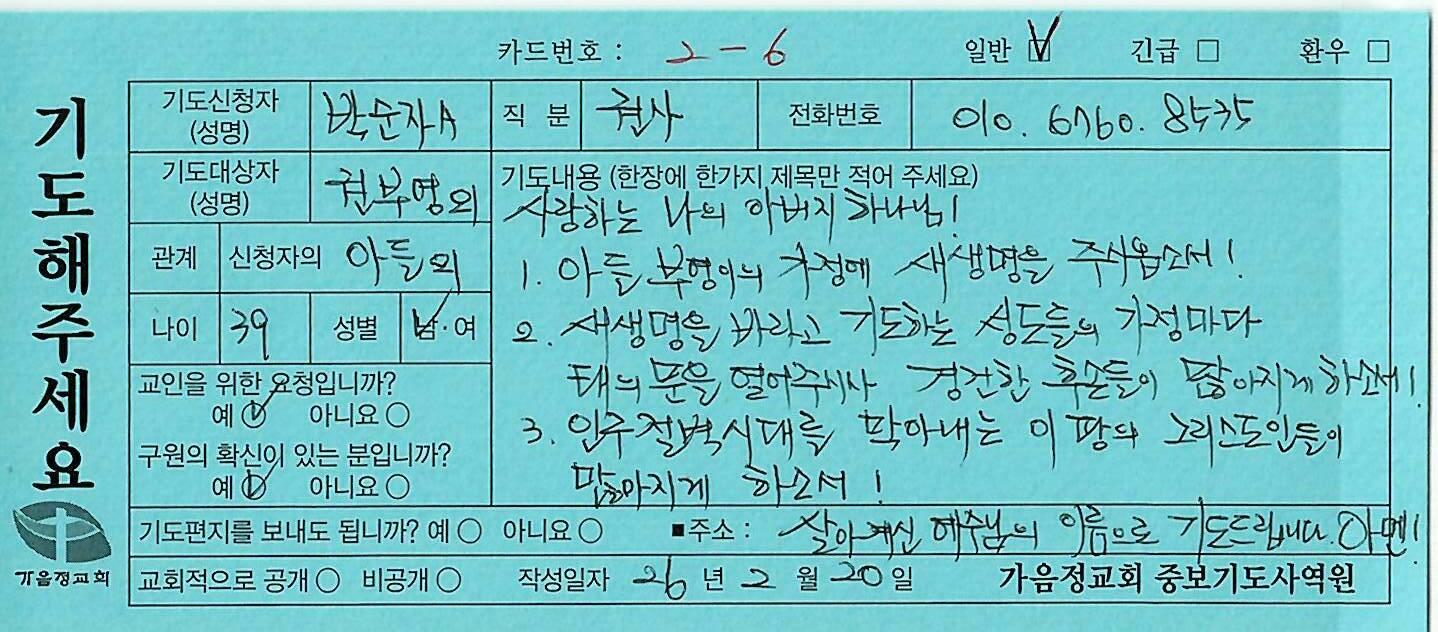 카드번호 : 2-6 일반 ☑ 긴급 □ 환우 □
기도해주세요
기도신청자 (성명) 박순자A 직 분 권사 전화번호 010. 6760. 8535
기도대상자 (성명) 권부영외
관계 신청자의 아들외
나이 39 성별 남·여
교인을 위한 요청입니까?
예 ○ 아니요 ○
구원의 확신이 있는 분입니까?
예 ○ 아니요 ○
기도내용 (한장에 한가지 제목만 적어 주세요)
사랑하는 나의 아버지 하나님!
1. 아들 부영이의 가정에 새생명을 주시옵소서!
2. 새생명을 바라고 기도하는 성도들의 가정마다
태의 문을 열어주시사 경건한 후손들이 많아지게 하소서!
3. 인구절벽시대를 막아내는 이 땅의 그리스도인들이
많아지게 하소서!
기도편지를 보내도 됩니까? 예 ○ 아니요 ○ ■주소 : 살아계신 예수님의 이름으로 기도드립니다. 아멘!
교회적으로 공개 ○ 비공개 ○ 작성일자 26 년 2 월 20 일 가음정교회 중보기도사역원
가음정교회